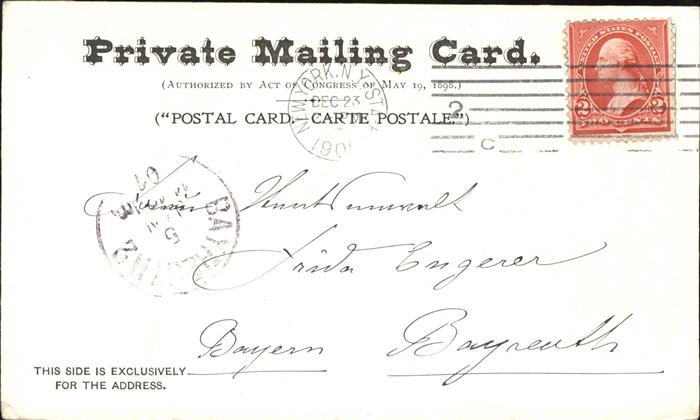 Private Mailing Card.
(AUTHORIZED BY ACT OF CONGRESS OF MAY 19, 1898.)
("POSTAL CARD - CARTE POSTALE.")
NEW YORK, N.Y. STA.
DEC 23
190
2
C
UNITED STATES POSTAGE
2 2
TWO CENTS
BAYREUTH 2
5
01
Frida Engerer
Bayern Bayreuth
THIS SIDE IS EXCLUSIVELY
FOR THE ADDRESS.